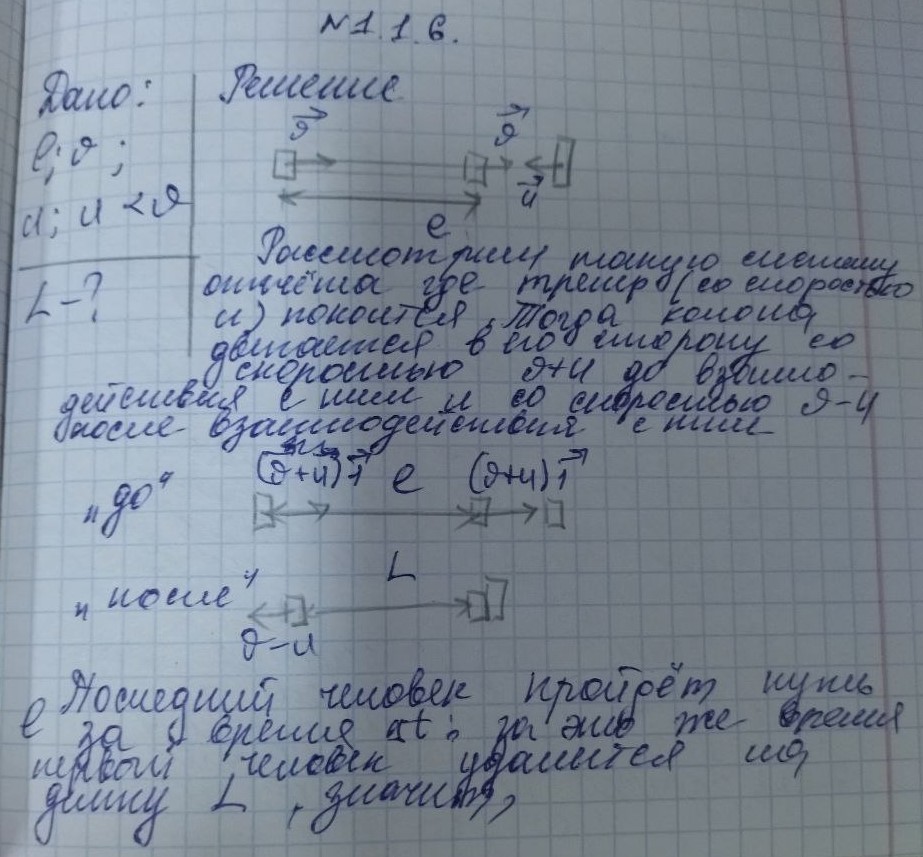 N1.1.6.
Дано:
Решение
l; υ;
u; u < υ
L-?
υ
υ
u
l
Рассмотрим такую систему
отсчёта где тренер (со скоростью
u) покоится. Тогда колона
двигается в его сторону со
скоростью υ+u до взаимо-
действия с ним и со скоростью υ-u
после взаимодействия с ним
"до"
(υ+u)1
l
(υ+u)1
"после"
L
υ-u
Последний человек пройдёт путь
l за время Δt; за это же время
первый человек удалится на
длину L, значит,